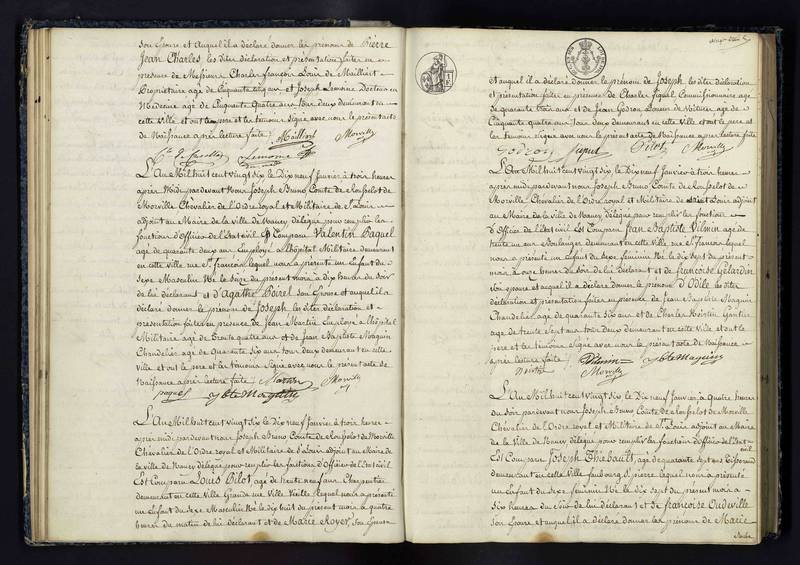 son Epouse et auquel il a déclaré donner les prénoms de Pierre
Jean Charles les dites déclaration et présentation faites en
présence de Messieurs Charles françois Louis de Maillart
Propriétaire agé de Cinquante Cinq ans et Joseph Lemoine Docteur en
Médecine agé de Cinquante quatre ans tous deux demeurant en
cette Ville et ont le père et les témoins Signé avec nous le présent acte
de Naissance après lecture faite
Maillart Morville
Lemoine
L'An Mil huit cent vingt six le Dix neuf Janvier à trois heures
après Midi pardevant Nous Joseph Bruno Comte de Rousselot de
Morville Chevalier de l'Ordre royal et Militaire de St Louis
adjoint au Maire de la ville de Nancy délégué pour remplir les
fonctions d'Officier de l'Etat civil Est Comparu Valentin Paquel
agé de quarante deux ans Employé à l'hôpital Militaire demeurant
en cette ville rue St françois lequel nous a présenté un Enfant du
Sexe Masculin Né le seize du présent mois à dix heures du soir
de lui déclarant et d'Agathe Poirel son Epouse et auquel il a
déclaré donner le prénom de Joseph les dites déclaration et
présentation faites en présence de Jean Martin Employé à l'hôpital
Militaire agé de Trente quatre ans et de Jean Baptiste Moquin
Chandelier agé de Quarante Six ans tous deux demeurant en cette
ville et ont le père et les témoins Signé avec nous le présent acte de
Naissance après lecture faite Martin Morville
paquel
L'An Mil huit cent vingt six le Dix neuf Janvier à trois heures
après midi pardevant nous Joseph Bruno Comte de Rousselot de Morville
Chevalier de l'Ordre royal et Militaire de St Louis adjoint au Maire de
la ville de Nancy délégué pour remplir les fonctions d'Officier de l'Etat civil
Est Comparu Louis Pilot agé de trente neuf ans Charpentier
demeurant en cette Ville Grande rue Ville Vieille lequel nous a présenté
un Enfant du Sexe Masculin Né le dix huit du présent mois à quatre
heures du matin de lui déclarant et de Marie Royer son Epouse
et auquel il a déclaré donner le prénom de Joseph les dites déclaration
et présentation faites en présence de Charles Commissionnaire agé
de quarante trois ans et de Jean Godron agé de
Cinquante quatre ans tous deux demeurant en cette ville et ont le père et
les témoins signé avec nous le présent acte de Naissance après lecture faite
Godron Pilot Morville
L'An Mil huit cent vingt six le Dix neuf Janvier à trois heures
après midi pardevant nous Joseph Bruno Comte de Rousselot de
Morville Chevalier de l'Ordre royal et Militaire de Saint Louis adjoint
au Maire de la Ville de Nancy Délégué pour remplir les fonctions
d'Officier de l'Etat civil Est Comparu Jean Baptiste Vilmin agé de
trente un ans Boulanger demeurant en cette ville rue St françois lequel
nous a présenté un Enfant du Sexe féminin Né le dix sept du présent
mois à onze heures du soir de lui déclarant et de francoise Gélardin
son épouse et auquel il a déclaré donner le prénom d'Odile les dites
déclaration et présentation faites en présence de Jean Baptiste Moquin
Chandelier agé de quarante Six ans et de Charles Martin Gantier
agé de trente Sept ans tous deux demeurant en cette ville et ont le
père et les témoins Signé avec nous le présent acte de Naissance
après lecture faite Vilmin
Morville
L'An Mil huit cent vingt six le Dix neuf Janvier à quatre heures
du soir pardevant nous Joseph Bruno Comte de Rousselot de Morville
Chevalier de l'Ordre royal et Militaire de St Louis adjoint au Maire
de la Ville de Nancy délégué pour remplir les fonctions d'Officier de l'Etat
Est Comparu Joseph Thiebault agé de quarante Sept ans
demeurant en cette ville faubourg St pierre lequel nous a présenté
un Enfant du Sexe féminin Né le dix Sept du présent mois à
Six heures du Soir de lui déclarant et de francoise Oudeville
son Epouse et auquel il a déclaré donner les prénoms de Marie